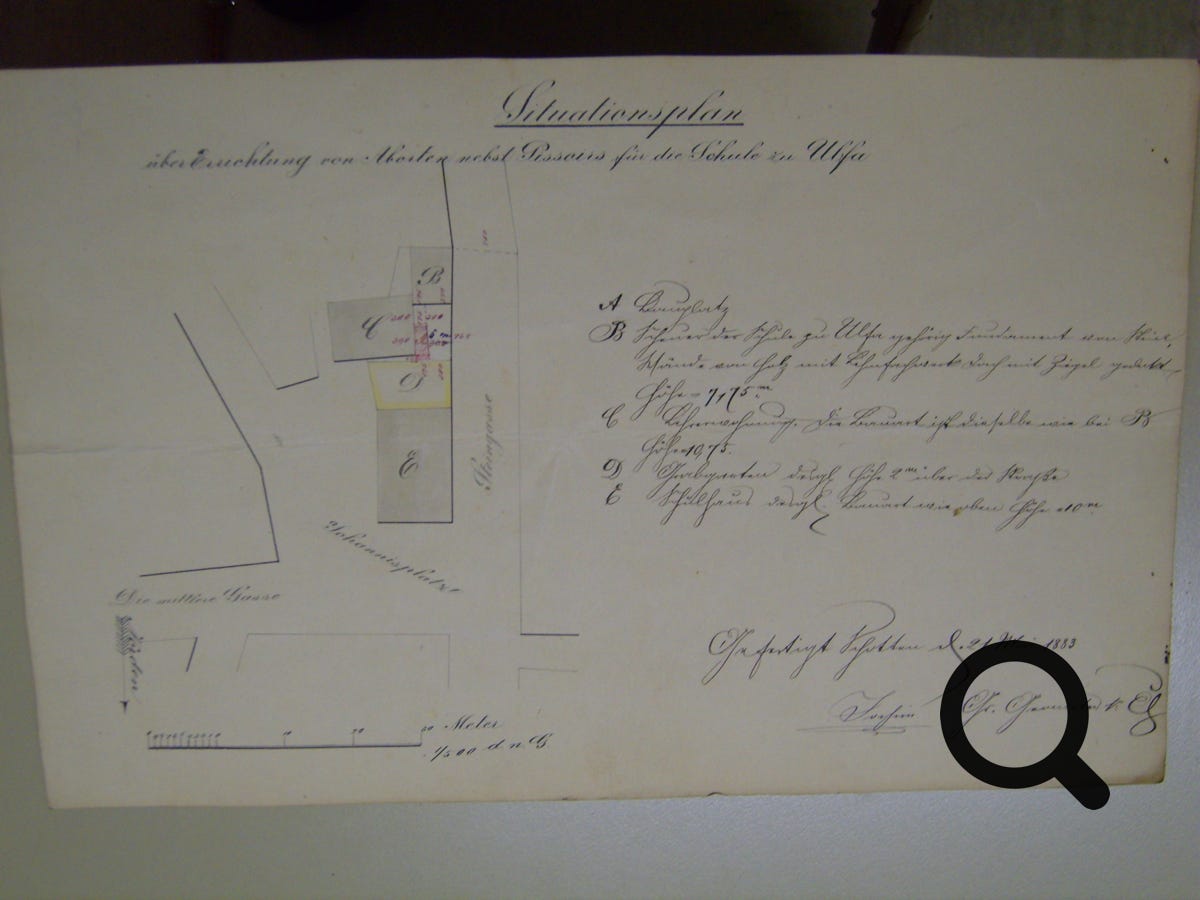 Situationsplan
über Errichtung von Aborten nebst Pissoirs für die Schule zu Ulfa
B
C
D
E
Steingasse
Johannisplatz
Die mittlere Gasse
Norden
Meter
1/500 d n G
A Bauplatz
B Scheuer der Schule zu Ulfa gehörig Fundament von Stein,
Wände von Holz mit Lehmfachwerk Dach mit Ziegel gedeckt
Höhe = 7,75 m
C Lehrerwohnung. Die Bauart ist dieselbe wie bei B
Höhe = 10,75.
D Grabgarten desgl. Höhe 2 m über der Straße
E Schulhaus desgl. Bauart wie oben Höhe = 10 m
Gefertigt Schotten d. 21 1883
Gr. Geometer